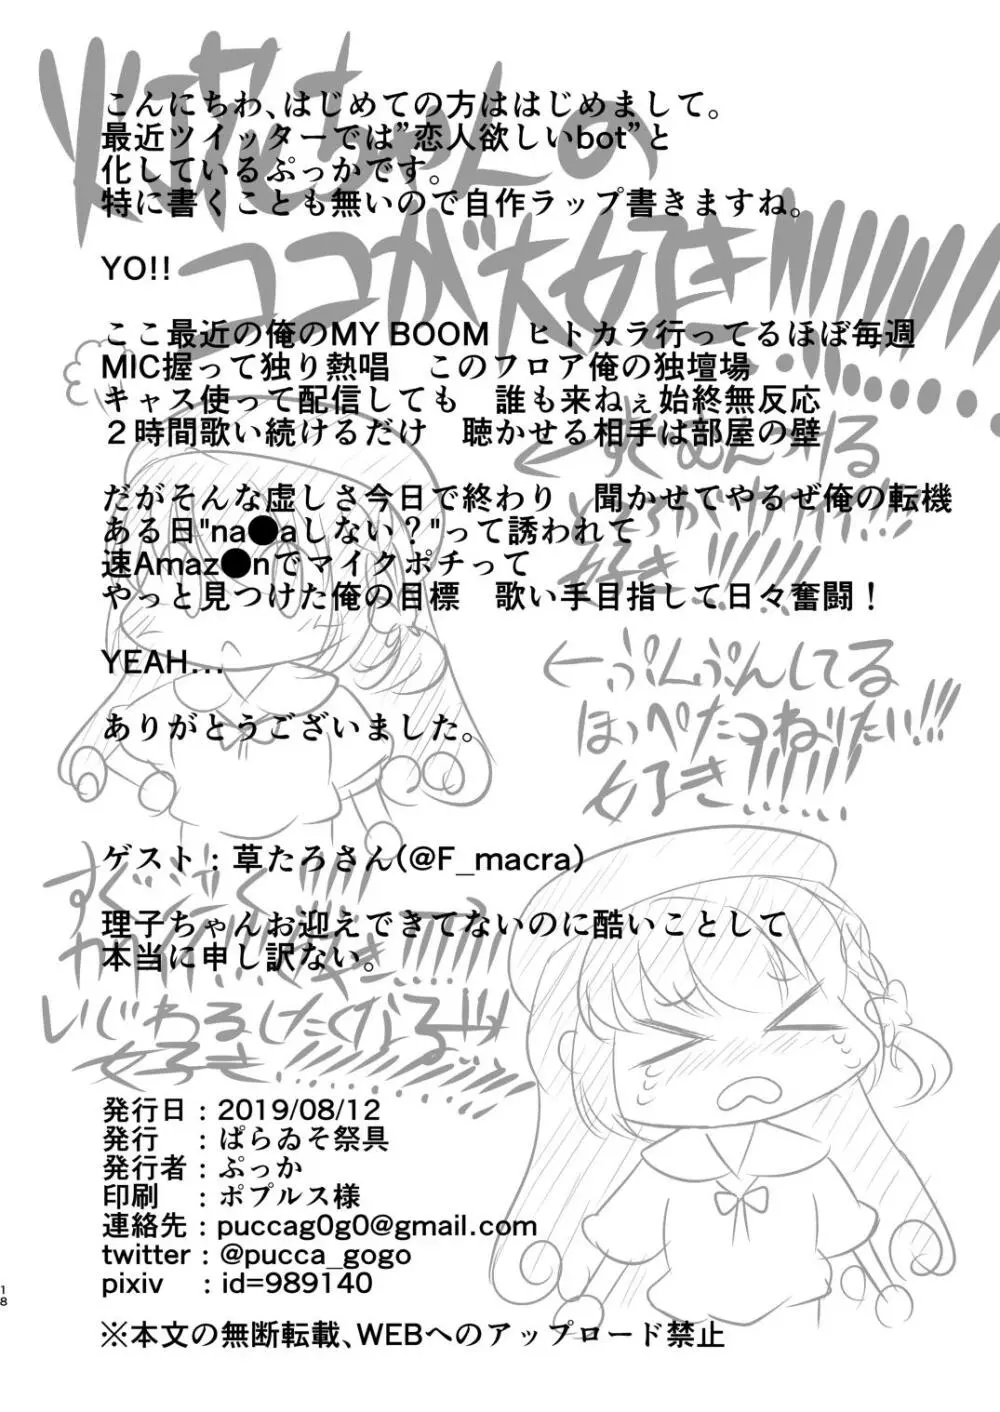 火花ちゃんの
ココが大好き!!!!!!!!!!
こんにちわ、はじめての方ははじめまして。
最近ツイッターでは”恋人欲しいbot”と
化しているぷっかです。
特に書くことも無いので自作ラップ書きますね。
YO!!
ここ最近の俺のMY BOOM　ヒトカラ行ってるほぼ毎週
MIC握って独り熱唱　このフロア俺の独壇場
キャス使って配信しても　誰も来ねぇ始終無反応
２時間歌い続けるだけ　聴かせる相手は部屋の壁
だがそんな虚しさ今日で終わり　聞かせてやるぜ俺の転機
ある日"na●aしない？"って誘われて
速Amaz●nでマイクポチって
やっと見つけた俺の目標　歌い手目指して日々奮闘！
YEAH...
ありがとうございました。
←すぐむくれる
好き
←ぷんぷんしてる
ほっぺたつねりたい!!!
好き!!!!!!
ゲスト：草たろさん(@F_macra)
理子ちゃんお迎えできてないのに酷いことして
本当に申し訳ない。
いじわるしたくなる
好き
発行日：2019/08/12
発行　：ぱらゐそ祭具
発行者：ぷっか
印刷　：ポプルス様
連絡先：puccag0g0@gmail.com
twitter：@pucca_gogo
pixiv　：id=989140
※本文の無断転載、WEBへのアップロード禁止
18